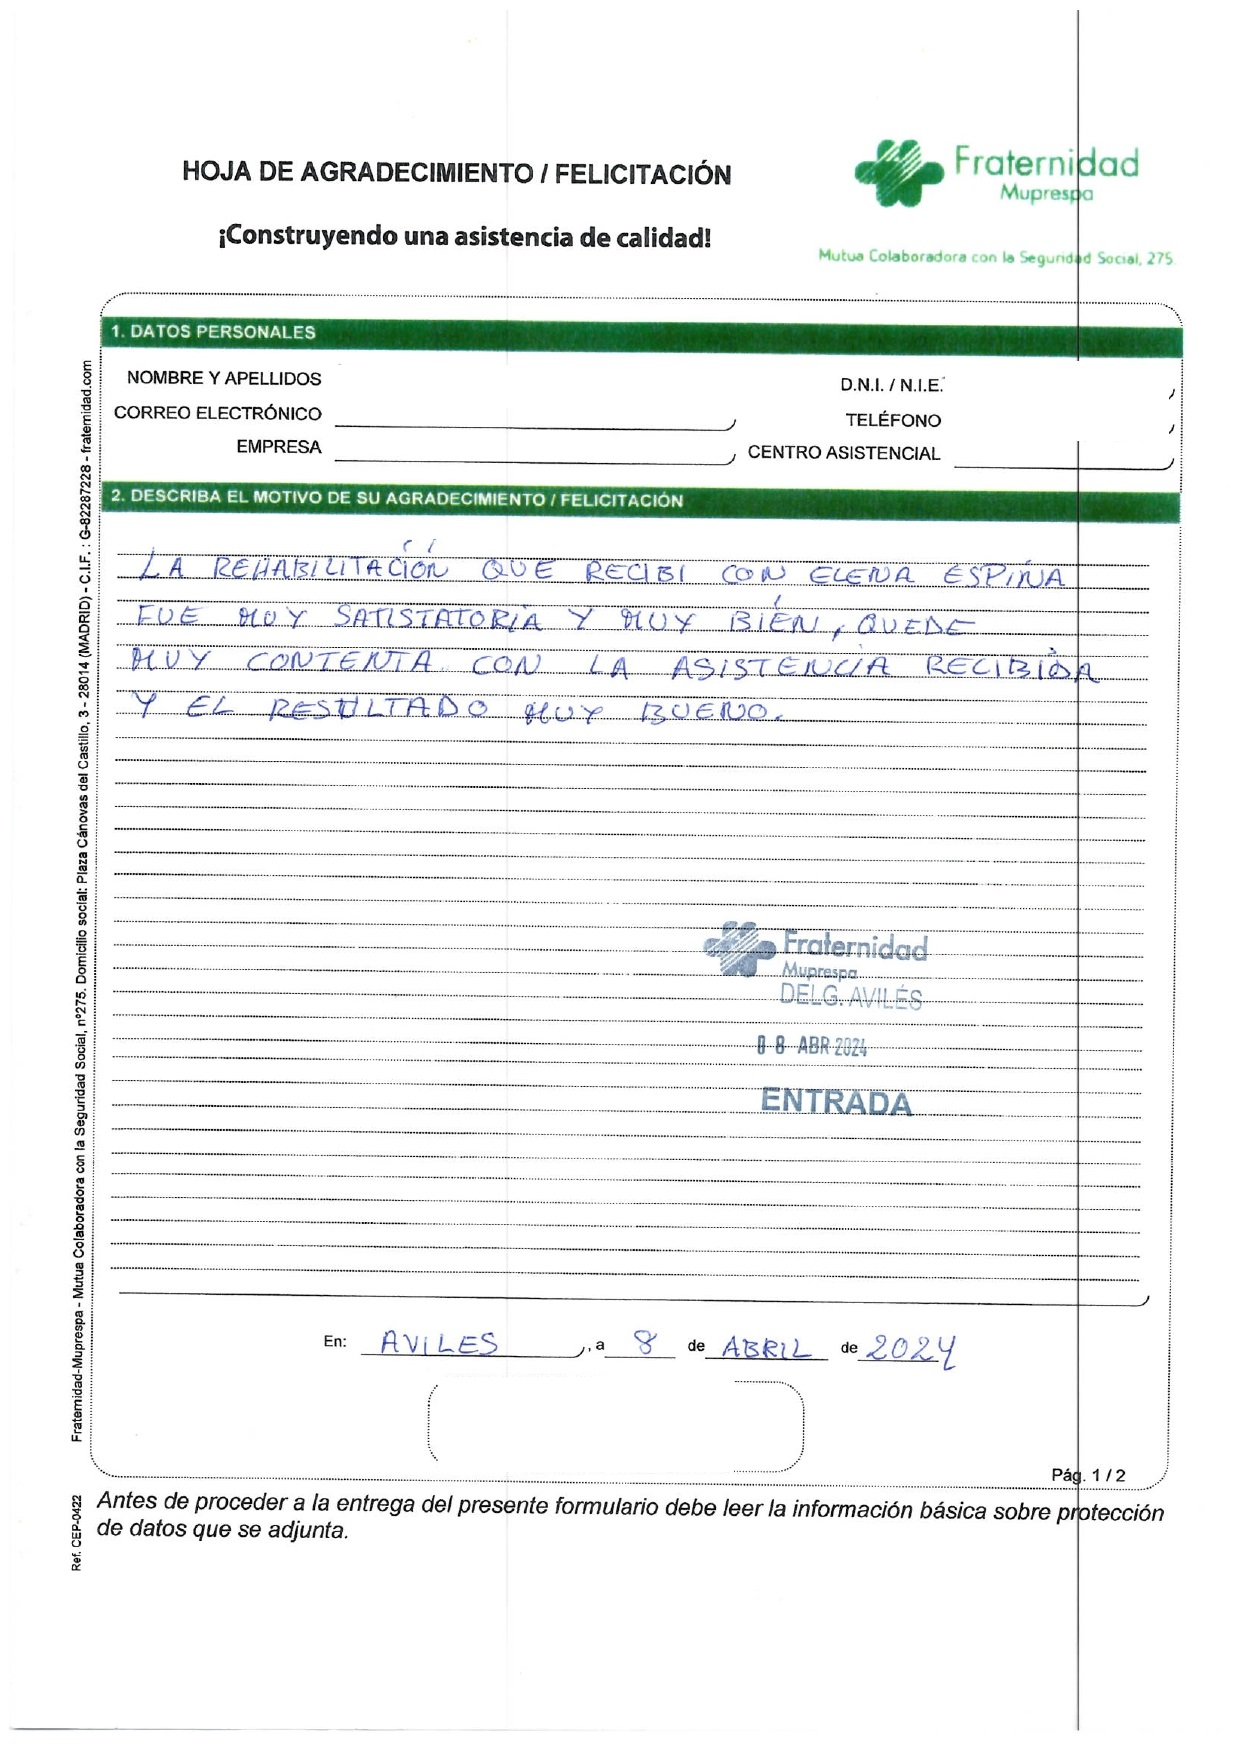 HOJA DE AGRADECIMIENTO / FELICITACIÓN
¡Construyendo una asistencia de calidad!
Fraternidad
Muprespa
Mutua Colaboradora con la Seguridad Social, 275
1. DATOS PERSONALES
NOMBRE Y APELLIDOS
D.N.I. / N.I.E.
CORREO ELECTRÓNICO
TELÉFONO
EMPRESA
CENTRO ASISTENCIAL
2. DESCRIBA EL MOTIVO DE SU AGRADECIMIENTO / FELICITACIÓN
LA REHABILITACIÓN QUE RECIBI CON ELENA ESPIÑA
FUE MUY SATISTATORIA Y MUY BIÉN, QUEDE
MUY CONTENTA CON LA ASISTENCIA RECIBIDA
Y EL RESULTADO MUY BUENO.
Fraternidad
Muprespa
DELG. AVILÉS
08 ABR 2024
ENTRADA
En: AVILES, a 8 de ABRIL de 2024
Pág. 1 / 2
Antes de proceder a la entrega del presente formulario debe leer la información básica sobre protección
de datos que se adjunta.
Fraternidad-Muprespa - Mutua Colaboradora con la Seguridad Social, nº275. Domicilio social: Plaza Cánovas del Castillo, 3 - 28014 (MADRID) - C.I.F. : G-82287228 - fraternidad.com
Ref. CEP-0422